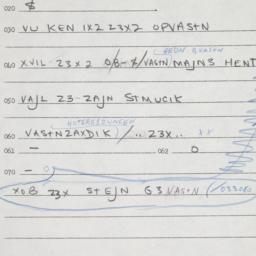 020 $
030 VU KEN 1X2 23X2 OPVASTN
NEON BVASTN
040 XVIL 23X2 O/B-$/VASTN/MAJNS HENT
050 VAJL 23-ZAJN STMUCIK
HUTERESZUNGEN
060 VASTNZAXDIK / .. 23X.. XX
061 — 062 O
070 — O
XOB 23X STEJN G3 VASTN (/033060